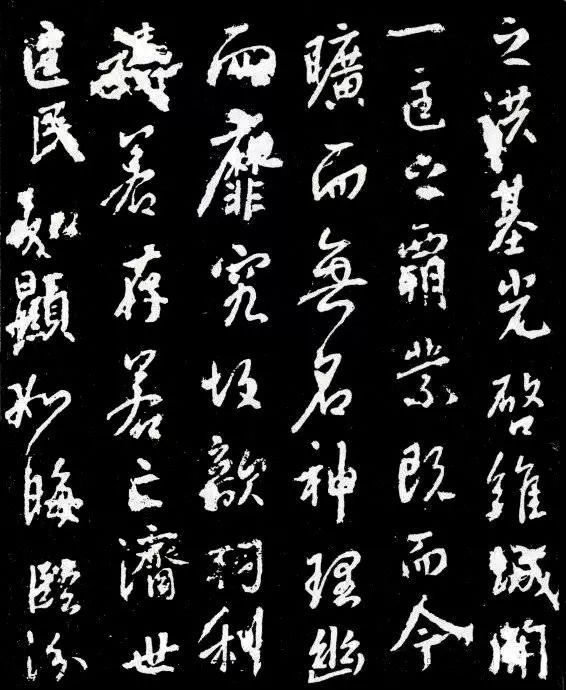 之洪基光啓維城開
一匡之霸業既而今
曠而無名神理幽
而靡究故歆祠利
禱若存若亡濟世
匡民如顯如晦臨汾